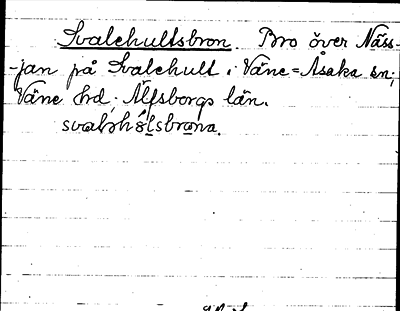 Svalehultsbron. Bro över Näss-
-jan på Svalehult i Väne-Åsaka sn;
Väne hd; Älfsborgs län.